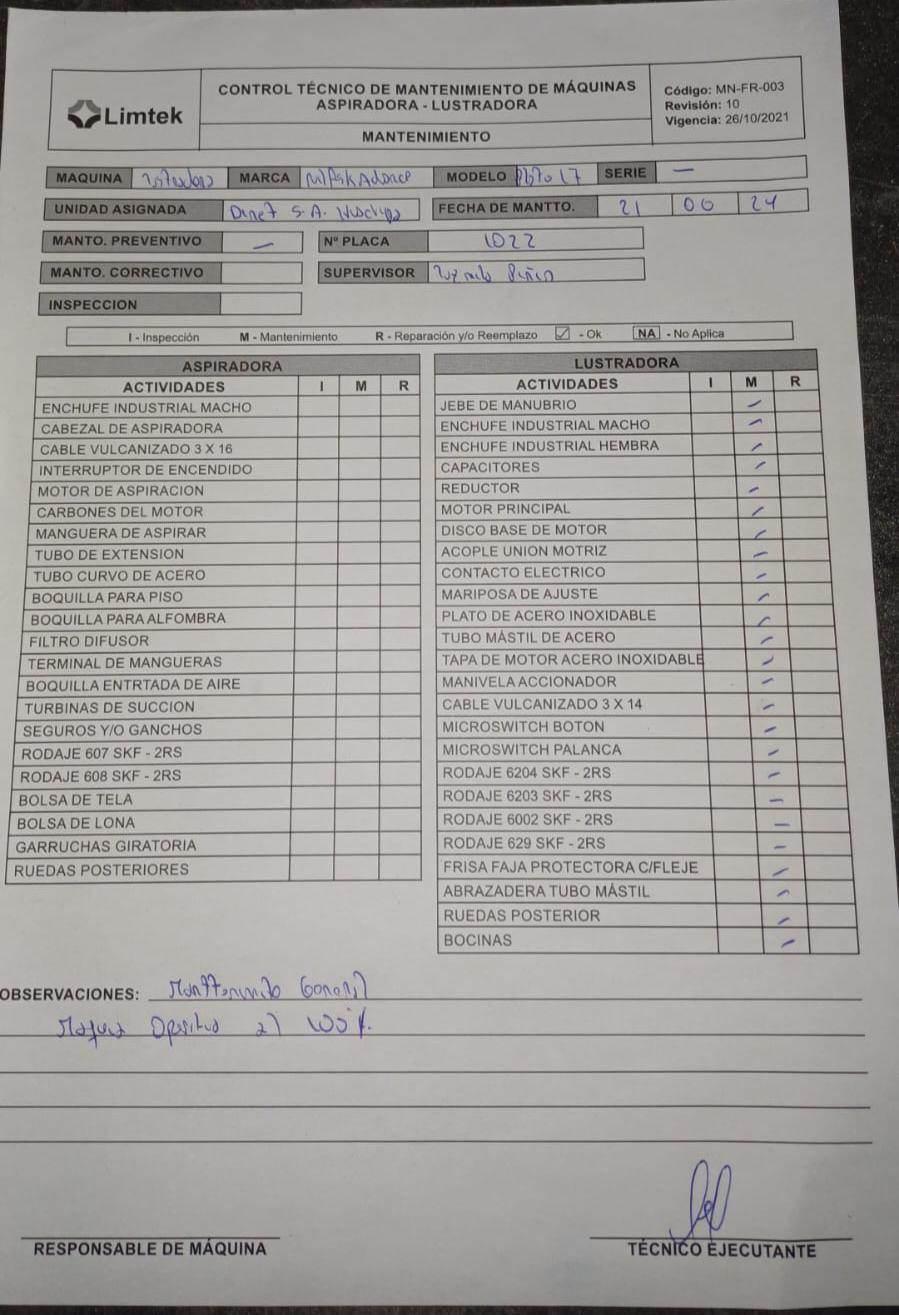 Limtek
CONTROL TÉCNICO DE MANTENIMIENTO DE MÁQUINAS
ASPIRADORA - LUSTRADORA
MANTENIMIENTO
Código: MN-FR-003
Revisión: 10
Vigencia: 26/10/2021
MAQUINA MARCA MODELO SERIE —
UNIDAD ASIGNADA S.A. FECHA DE MANTTO. 21 06 24
MANTO. PREVENTIVO — Nº PLACA 1022
MANTO. CORRECTIVO SUPERVISOR
INSPECCION
I - Inspección M - Mantenimiento R - Reparación y/o Reemplazo ☑ - Ok NA - No Aplica
ASPIRADORA
ACTIVIDADES I M R
ENCHUFE INDUSTRIAL MACHO
CABEZAL DE ASPIRADORA
CABLE VULCANIZADO 3 X 16
INTERRUPTOR DE ENCENDIDO
MOTOR DE ASPIRACION
CARBONES DEL MOTOR
MANGUERA DE ASPIRAR
TUBO DE EXTENSION
TUBO CURVO DE ACERO
BOQUILLA PARA PISO
BOQUILLA PARA ALFOMBRA
FILTRO DIFUSOR
TERMINAL DE MANGUERAS
BOQUILLA ENTRTADA DE AIRE
TURBINAS DE SUCCION
SEGUROS Y/O GANCHOS
RODAJE 607 SKF - 2RS
RODAJE 608 SKF - 2RS
BOLSA DE TELA
BOLSA DE LONA
GARRUCHAS GIRATORIA
RUEDAS POSTERIORES
LUSTRADORA
ACTIVIDADES I M R
JEBE DE MANUBRIO
ENCHUFE INDUSTRIAL MACHO
ENCHUFE INDUSTRIAL HEMBRA
CAPACITORES
REDUCTOR
MOTOR PRINCIPAL
DISCO BASE DE MOTOR
ACOPLE UNION MOTRIZ
CONTACTO ELECTRICO
MARIPOSA DE AJUSTE
PLATO DE ACERO INOXIDABLE
TUBO MÁSTIL DE ACERO
TAPA DE MOTOR ACERO INOXIDABLE
MANIVELA ACCIONADOR
CABLE VULCANIZADO 3 X 14
MICROSWITCH BOTON
MICROSWITCH PALANCA
RODAJE 6204 SKF - 2RS
RODAJE 6203 SKF - 2RS
RODAJE 6002 SKF - 2RS
RODAJE 629 SKF - 2RS
FRISA FAJA PROTECTORA C/FLEJE
ABRAZADERA TUBO MÁSTIL
RUEDAS POSTERIOR
BOCINAS
OBSERVACIONES: General
al 100%.
RESPONSABLE DE MÁQUINA
TÉCNICO EJECUTANTE